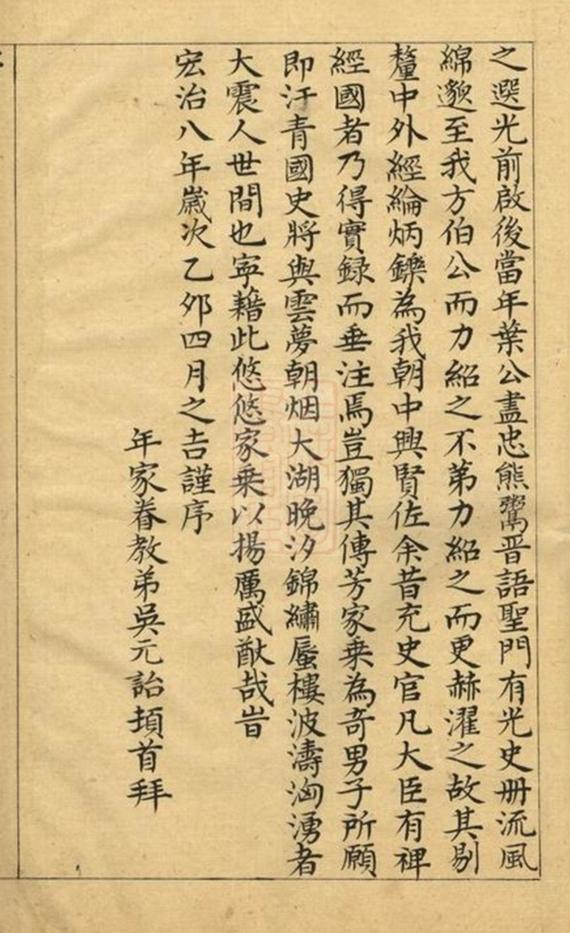 之選光前啟後當年葉公盡忠熊鸞晋語聖門有光史冊流風
綿邈至我方伯公而力紹之不第力紹之而更赫濯之故其剔
釐中外經綸炳鑠為我朝中興賢佐余昔充史官凡大臣有裨
經國者乃得實録而垂注焉豈獨其傳芳家乘為奇男子所願
即汗青國史將與雲夢朝烟大湖晚汐錦繡蜃樓波濤洶湧者
大震人世間也寧藉此悠悠家乘以揚厲盛猷哉旹
宏治八年嵗次乙夘四月之吉謹序
年家眷教弟吳元詒頓首拜